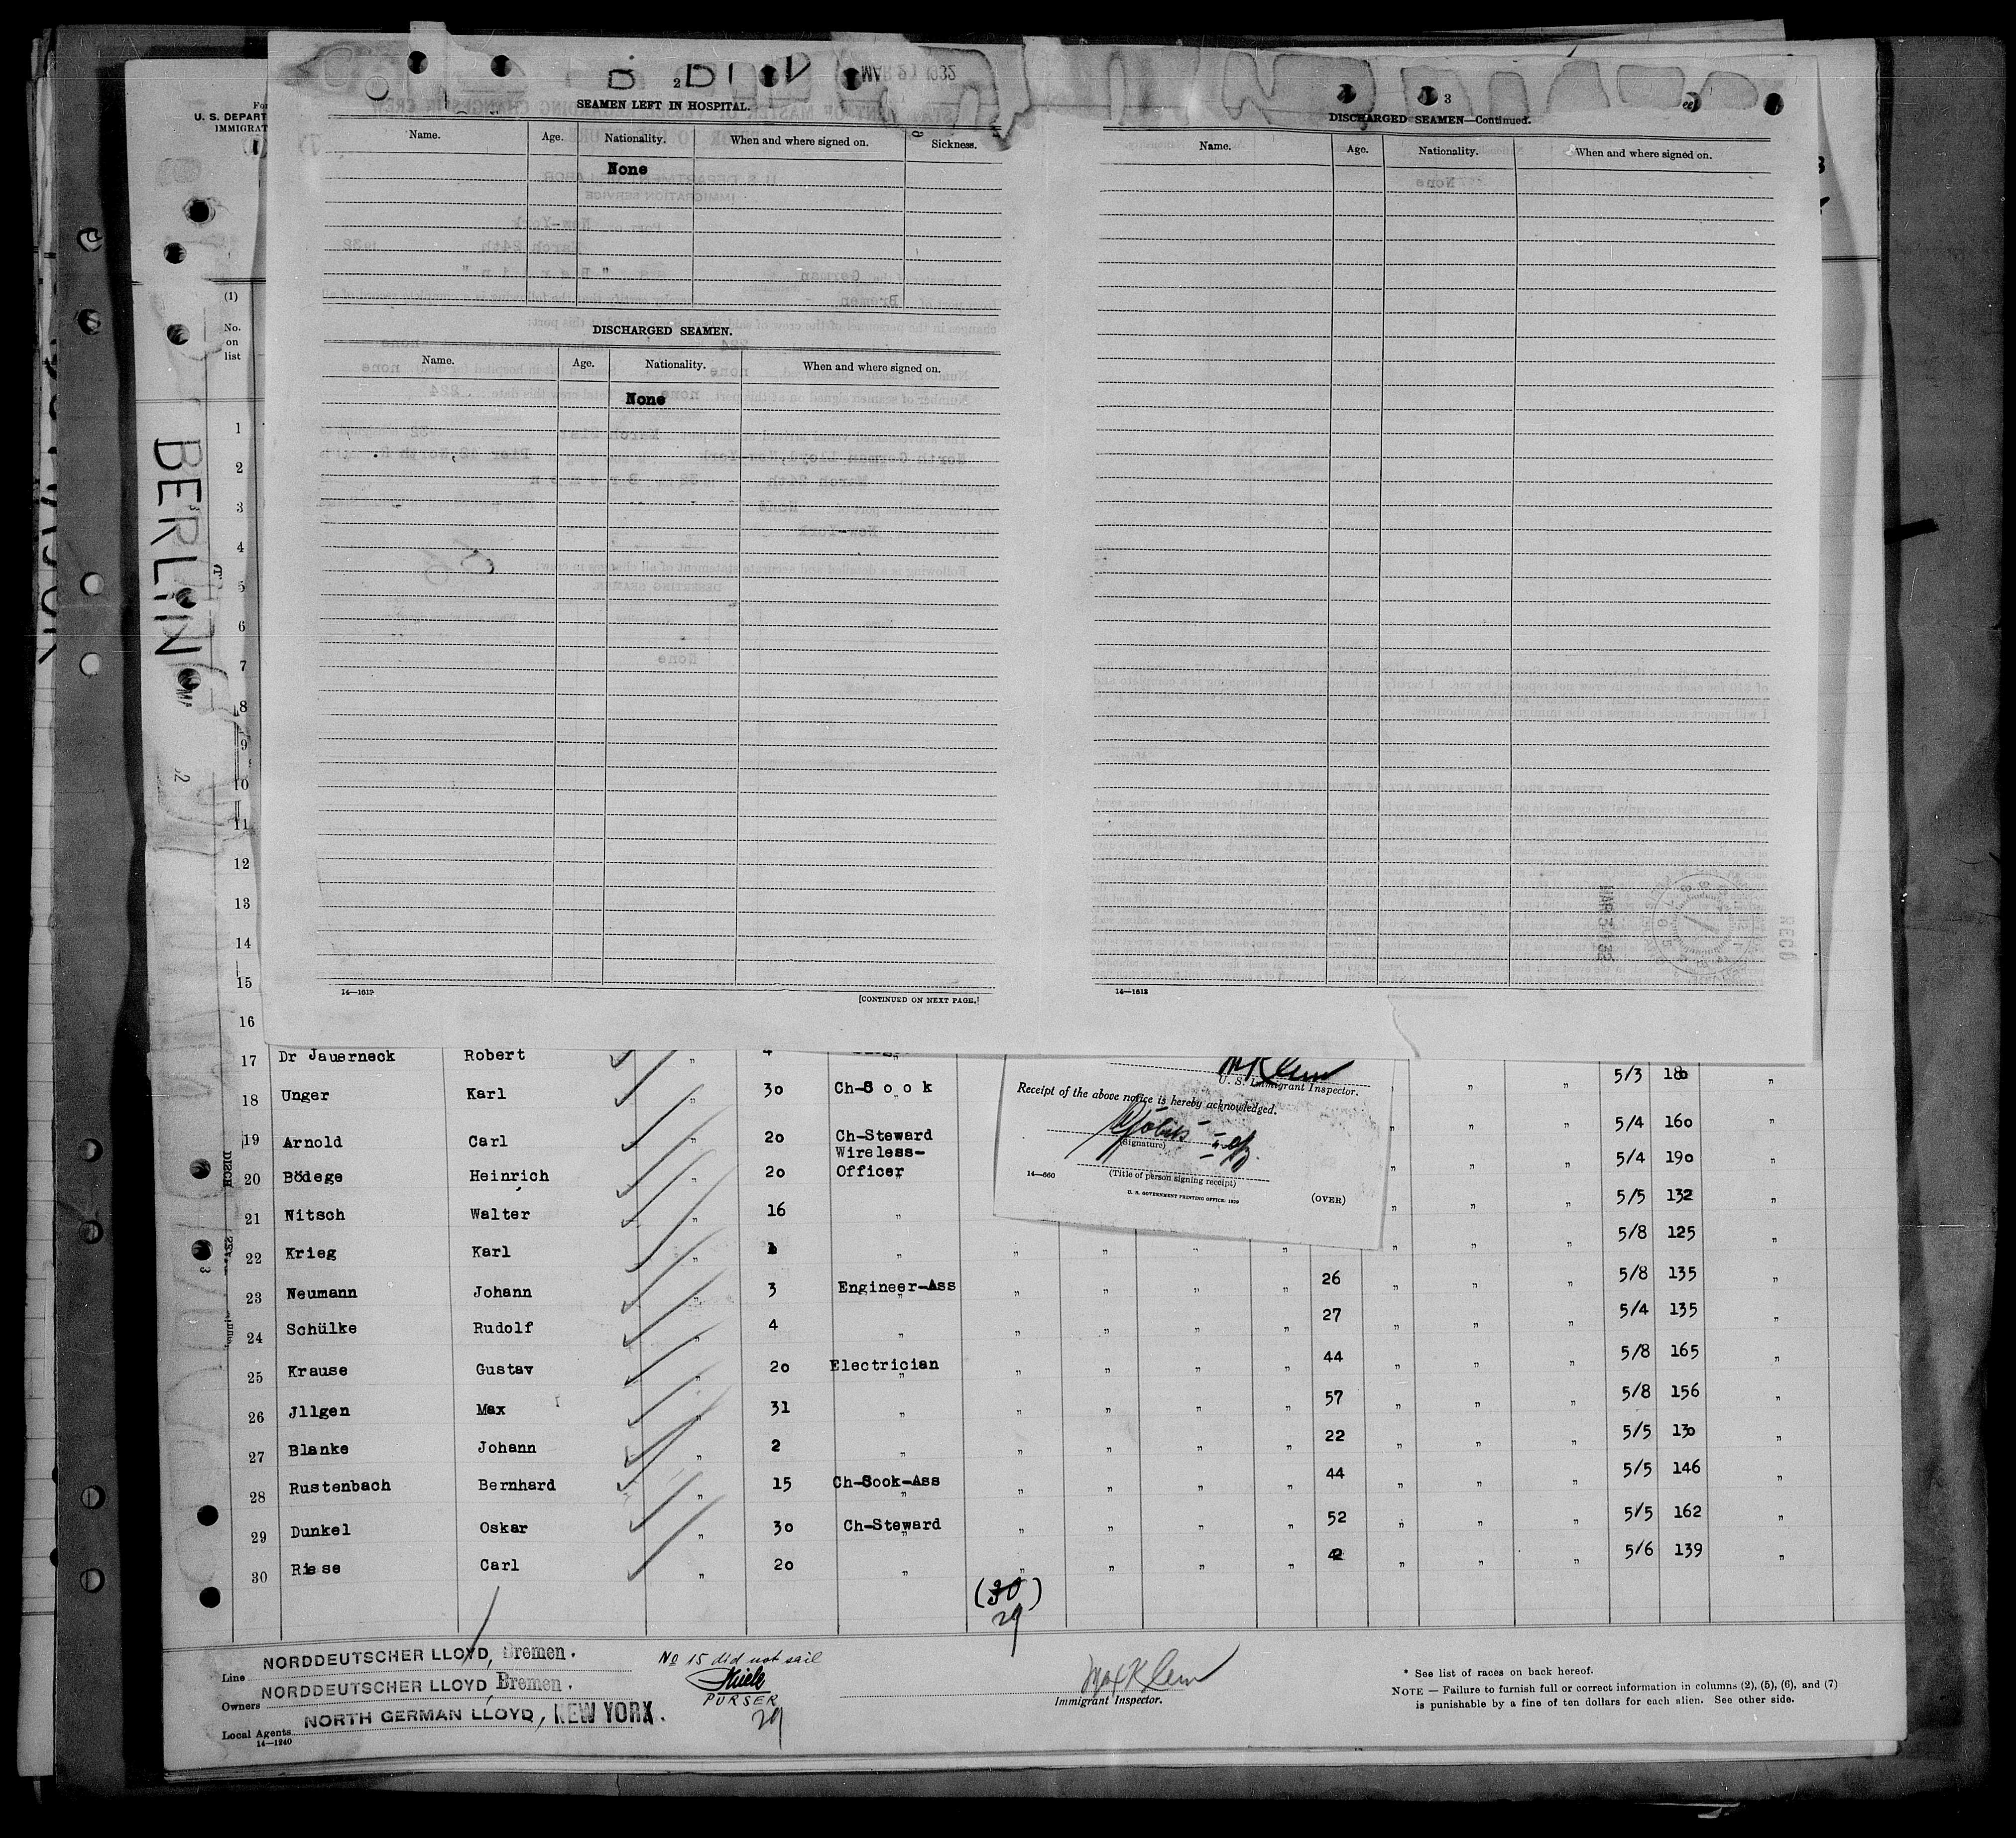 MAR 21 1932
2
SEAMEN LEFT IN HOSPITAL.
Name. Age. Nationality. When and where signed on. Sickness.
None
DISCHARGED SEAMEN.
Name. Age. Nationality. When and where signed on.
None
14—1612
[CONTINUED ON NEXT PAGE.]
3
DISCHARGED SEAMEN—Continued.
Name. Age. Nationality. When and where signed on.
14—1612
U. S. DEPART
IMMIGRAT
(1)
No.
on
list
BERLIN
1
2
3
4
5
6
7
8
9
10
11
12
13
14
15
16
17 Dr Jauerneck Robert " 4 " " " 5/3 180 "
18 Unger Karl " 30 Ch-Cook " " " 5/4 160 "
19 Arnold Carl " 20 Ch-Steward " " " 5/4 190 "
20 Bödege Heinrich " 20 Wireless-Officer " " " 5/5 132 "
21 Nitsch Walter " 16 " " " " 5/8 125 "
22 Krieg Karl " " " " " " " " "
23 Neumann Johann " 3 Engineer-Ass " " " " 26 " " " 5/8 135 "
24 Schülke Rudolf " 4 " " " " " 27 " " " 5/4 135 "
25 Krause Gustav " 20 Electrician " " " " 44 " " " 5/8 165 "
26 Jllgen Max " 31 " " " " " 57 " " " 5/8 156 "
27 Blanke Johann " 2 " " " " " 22 " " " 5/5 130 "
28 Rustenbach Bernhard " 15 Ch-Cook-Ass " " " " 44 " " " 5/5 146 "
29 Dunkel Oskar " 30 Ch-Steward " " " " 52 " " " 5/5 162 "
30 Riese Carl " 20 " " " " " 42 " " " 5/6 139 "
(30)
29
U. S. Immigrant Inspector.
Receipt of the above notice is hereby acknowledged.
(Signature)
(Title of person signing receipt)
14—660
U. S. GOVERNMENT PRINTING OFFICE: 1929
(OVER)
Line NORDDEUTSCHER LLOYD, Bremen.
Owners NORDDEUTSCHER LLOYD, Bremen.
Local Agents NORTH GERMAN LLOYD, NEW YORK.
14—1240
No 15 did not sail
PURSER
29
Max Klein
Immigrant Inspector.
* See list of races on back hereof.
NOTE — Failure to furnish full or correct information in columns (2), (5), (6), and (7)
is punishable by a fine of ten dollars for each alien. See other side.